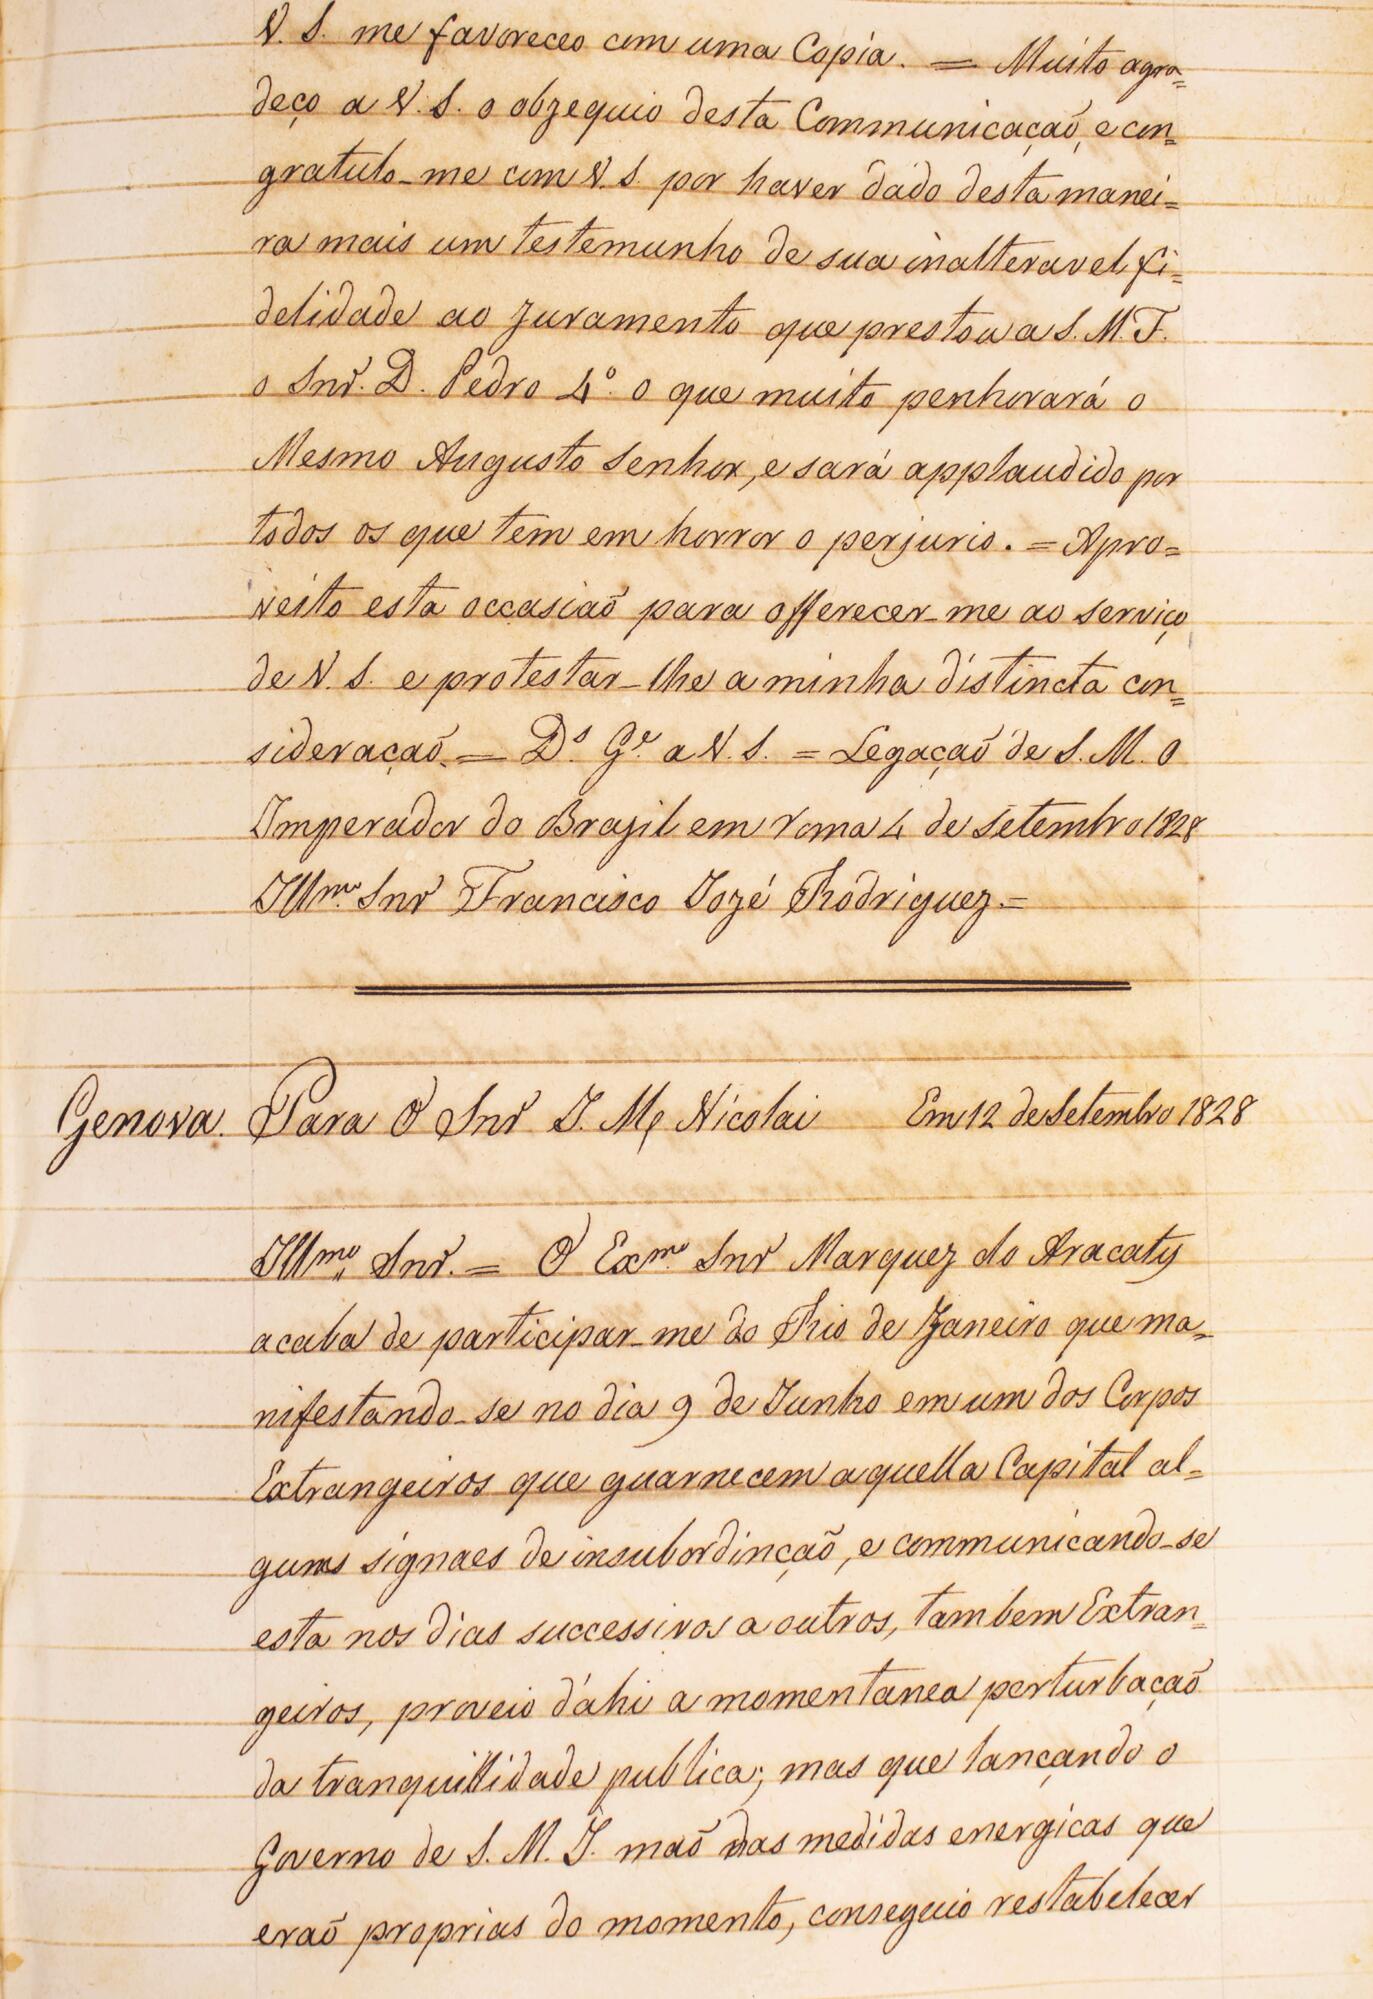 V. S. me favoreceo com uma Copia. = Muito agra=
deço a V. S. o obzequio desta Communicação, e con=
gratulo-me com V. S. por haver dado desta manei=
ra mais um testemunho de sua inalteravel fi=
delidade ao Juramento que prestou a S. M. F.
o Snr. D. Pedro 4º o que muito penhorará o
Mesmo Augusto Senhor, e sará applaudido por
todos os que tem em horror o perjurio. = Apro=
veito esta occasiaõ para offerecer-me ao serviço
de V. S. e protestar-lhe a minha distincta con=
sideraçaõ. = Ds. Ge. a V. S. = Legaçaõ de S. M. O
Imperador do Brazil em roma 4 de Setembro 1828
Illmo. Snr Francisco Jozé Rodriguez. =
Genova. Para O Snr J. M. Nicolai Em 12 de Setembro 1828
Illmo. Snr. = O Exmo. Snr Marquez do Aracaty
acaba de participar-me do Rio de Janeiro que ma=
nifestando-se no dia 9 de Junho em um dos Corpos
Extrangeiros que guarnecem aquella Capital al=
guns signaes de insubordinçaõ, e communicando-se
esta nos dias successivos a outros, tambem Extran=
geiros, proveio d'ahi a momentanea perturbaçaõ
da tranquillidade publica; mas que lançando o
Governo de S. M. I. maõ das medidas energicas que
eraõ proprias do momento, conseguio restabelecer